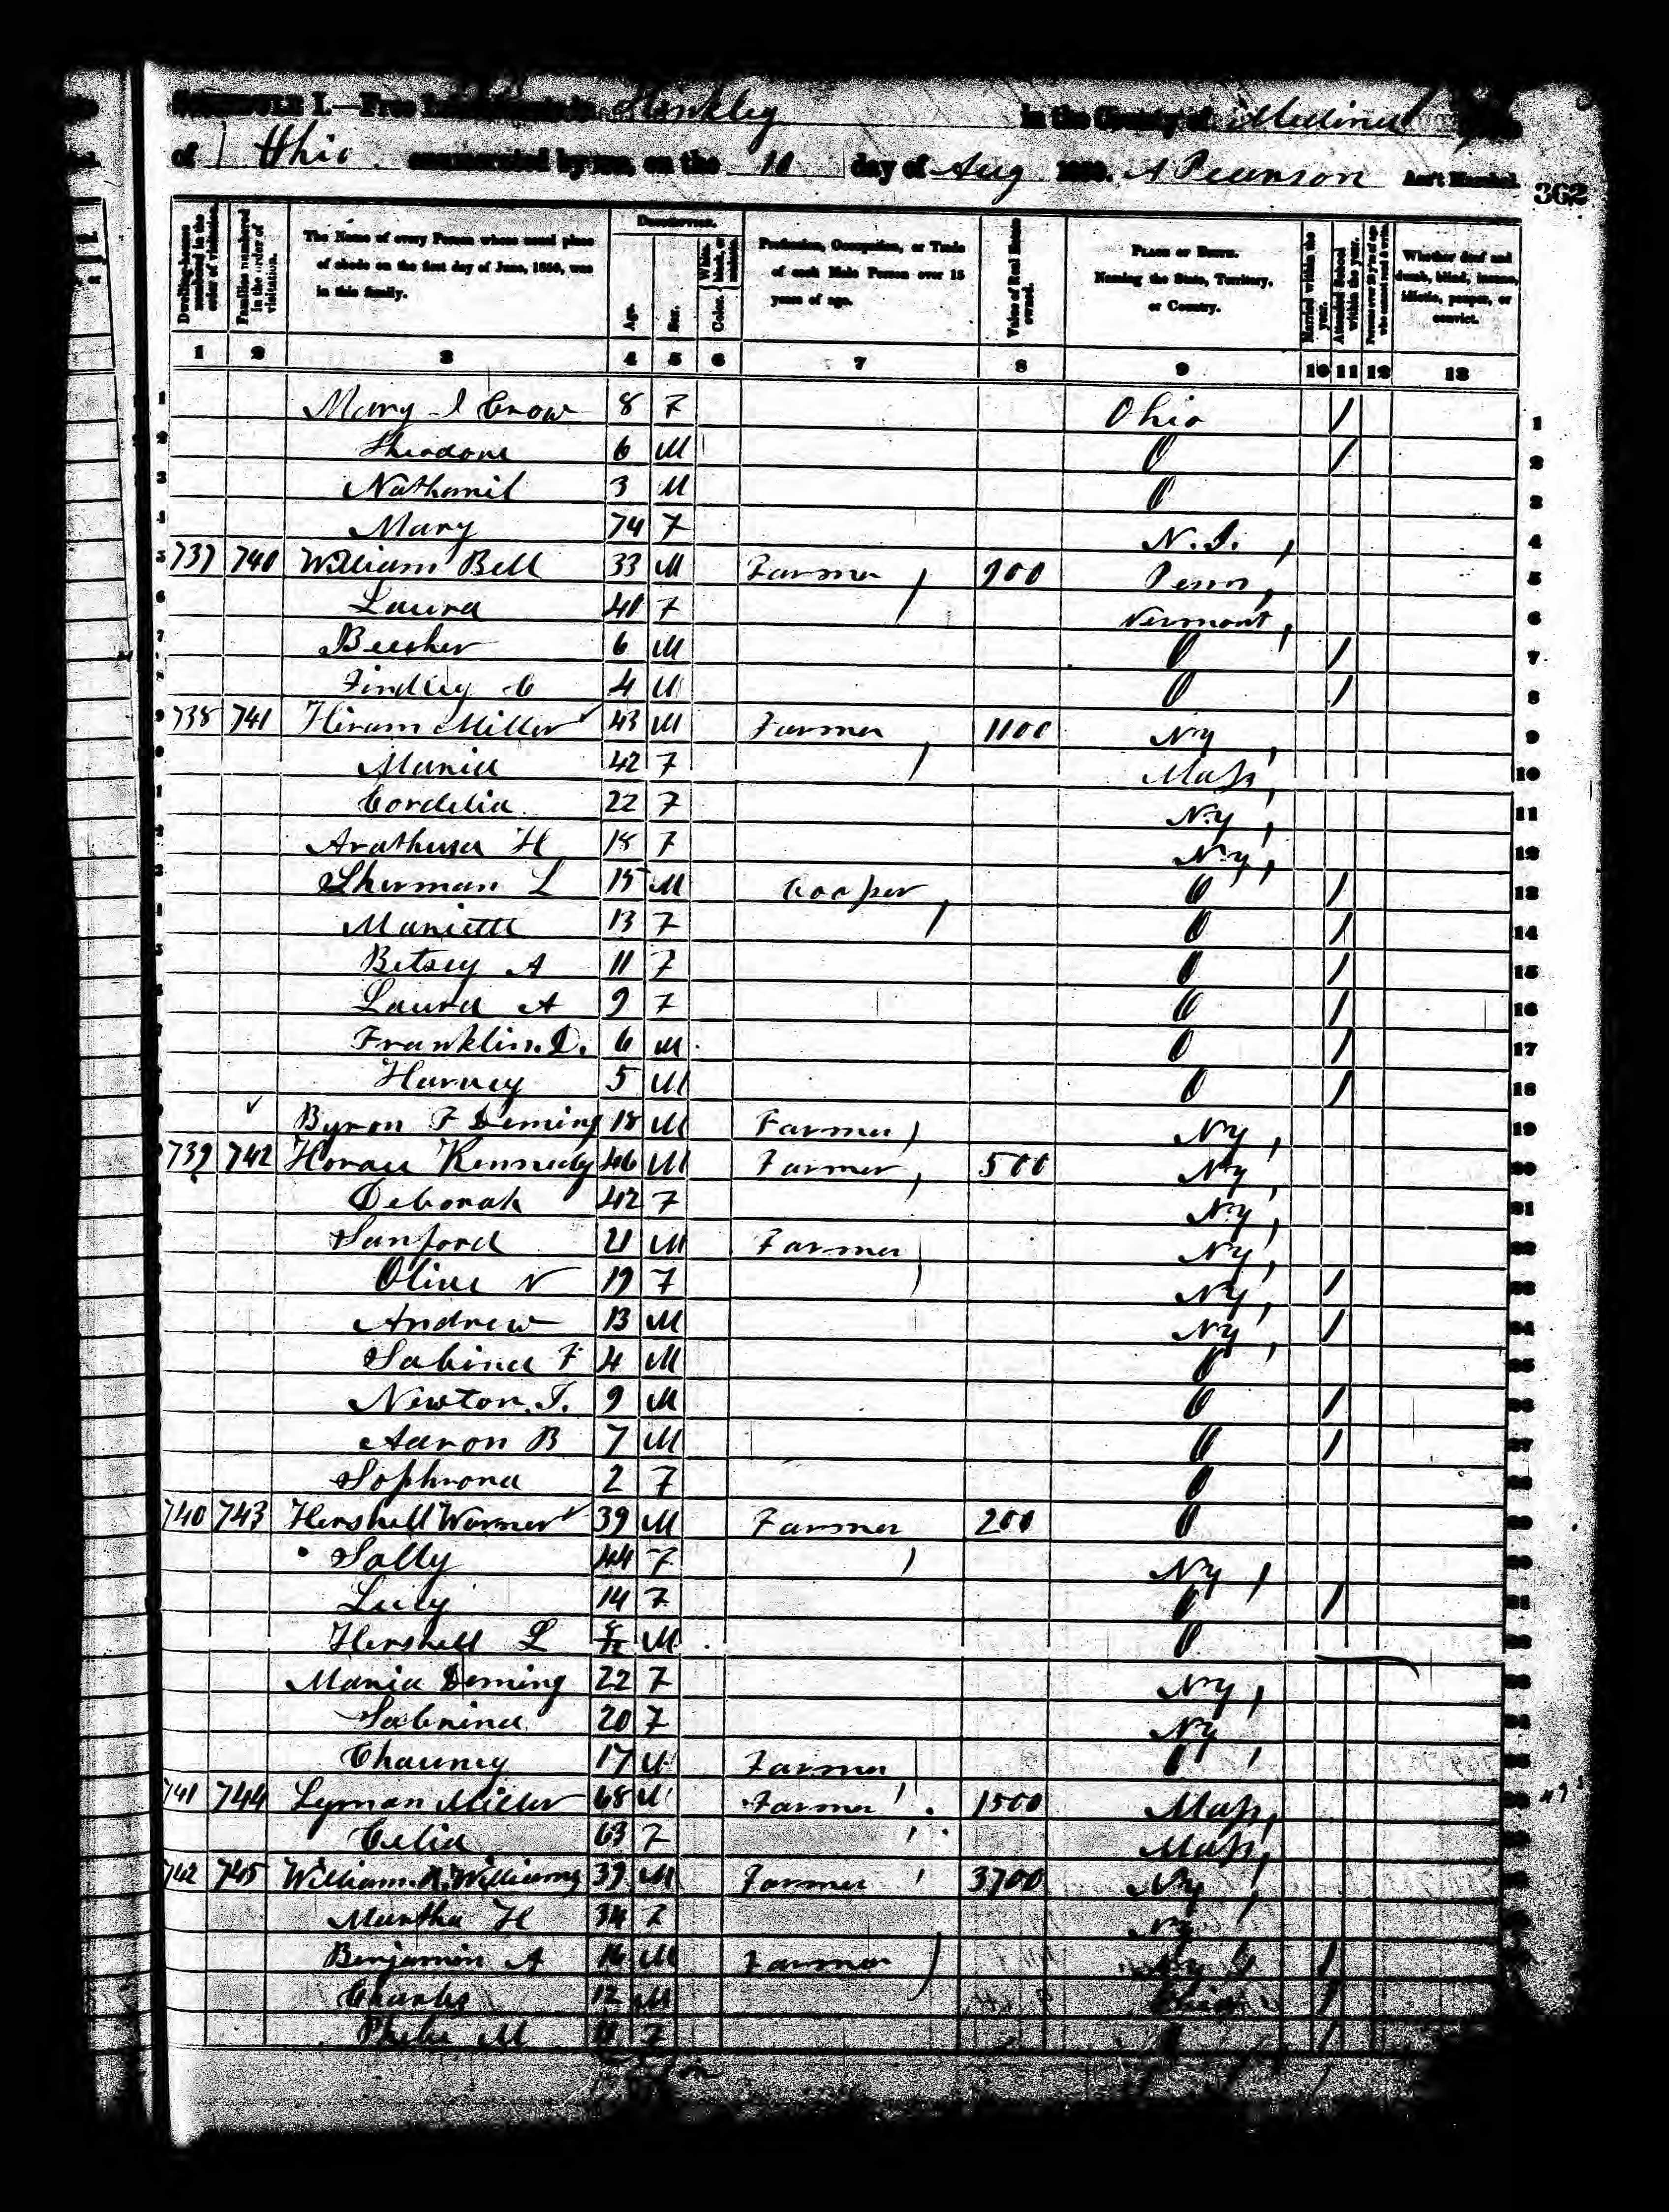 SCHEDULE I.—Free Inhabitants in Hinkley in the County of Medina State
of Ohio enumerated by me, on the 10 day of Aug 1850. A Pearson Ass't Marshal. 362
Dwelling-houses numbered in the order of visitation.
Families numbered in the order of visitation.
The Name of every Person whose usual place of abode on the first day of June, 1850, was in this family.
Description.
Age.
Sex.
Color. White, black, or mulatto.
Profession, Occupation, or Trade of each Male Person over 15 years of age.
Value of Real Estate owned.
Place of Birth. Naming the State, Territory, or Country.
Married within the year.
Attended School within the year.
Persons over 20 y'rs of age who cannot read & write.
Whether deaf and dumb, blind, insane, idiotic, pauper, or convict.
1 2 3 4 5 6 7 8 9 10 11 12 13
1 Mary J Crow 8 F Ohio / 1
2 Theodore 6 M O / 2
3 Nathanil 3 M O 3
Mary 74 F N.J. 4
5 737 740 William Bell 33 M Farmer 900 Penn 5
6 Laura 40 F Vermont 6
7 Beecher 6 M O / 7
8 Findley C 4 M O / 8
9 738 741 Hiram Miller 43 M Farmer 1100 NY 9
Maria 42 F Mass 10
Cordelia 22 F N.Y 11
Arathusa H 18 F N.Y 12
Sherman L 15 M Cooper O / 13
Mariette 13 F O / 14
Betsey A 11 F O / 15
Laura A 9 F O / 16
Franklin D. 6 M O / 17
Harvey 5 M O / 18
Byron F Deming 18 M Farmer NY 19
739 742 Horace Kennedy 46 M Farmer 500 NY 20
Deborah 42 F NY 21
Sanford 21 M Farmer NY 22
Olive N 19 F NY / 23
Andrew 13 M NY / 24
Sabina F 4 M O 25
Newton J. 9 M O / 26
Aaron B 7 M O / 27
Sophrona 2 F O 28
740 743 Hershell Warner 39 M Farmer 200 O 29
Sally 44 F NY 30
Lucy 14 F O / 31
Hershell L M O 32
Maria Deming 22 F NY 33
Sabrina 20 F NY 34
Chauncy 17 M Farmer O 35
741 744 Lyman Miller 68 M Farmer 1500 Mass
Celia 63 F Mass
742 745 William R. Williams 39 M Farmer 3700 NY
Martha H 34 F NY
Benjamin A 16 M Farmer NY /
Charles 12 M Ohio /
Phebe M F /